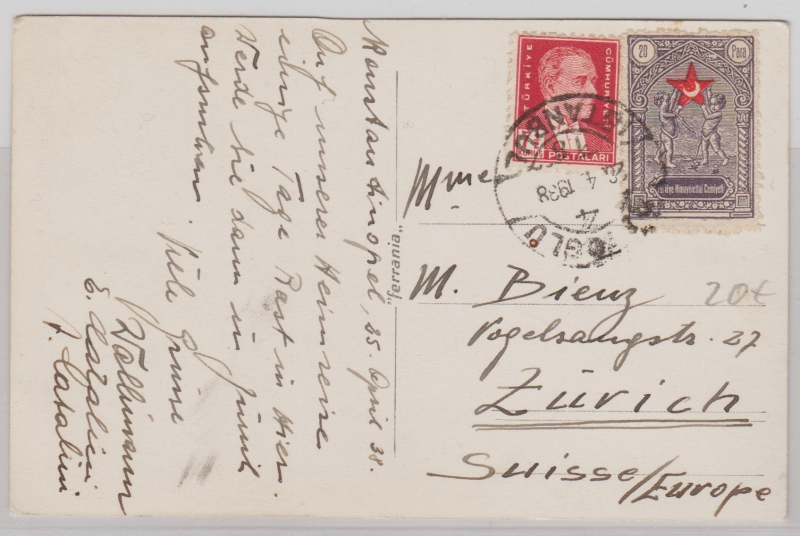 Konstantinopel, 25. April 38.
Auf unserer Heimreise
einige Tage Rast in Hier.
Werde Sie dann in Zürich
aufsuchen. Viele Grüsse
E. Catalini
F. Catalini
"ferrania"
TÜRKİYE CÜMHURİYETİ
POSTALARI
20 Para
Türkiye Himayeietfal Cemiyeti
İSTANBUL
4 1938
BEYOĞLU
Mme
M. Bienz
Vogelsangstr. 27
Zürich
Suisse/Europe
20€